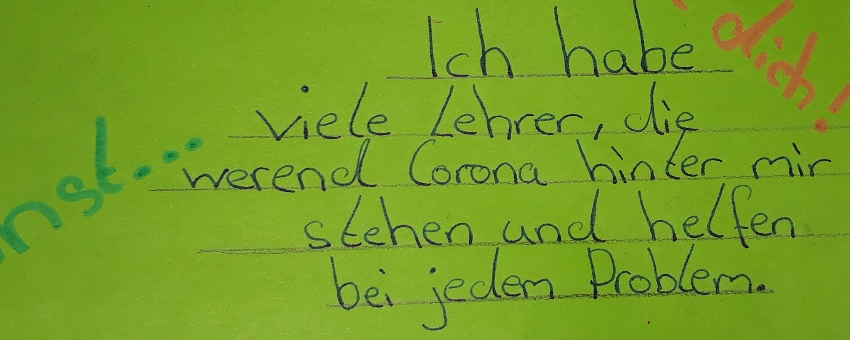 Ich habe
viele Lehrer, die
werend Corona hinter mir
stehen und helfen
bei jedem Problem.
dich!